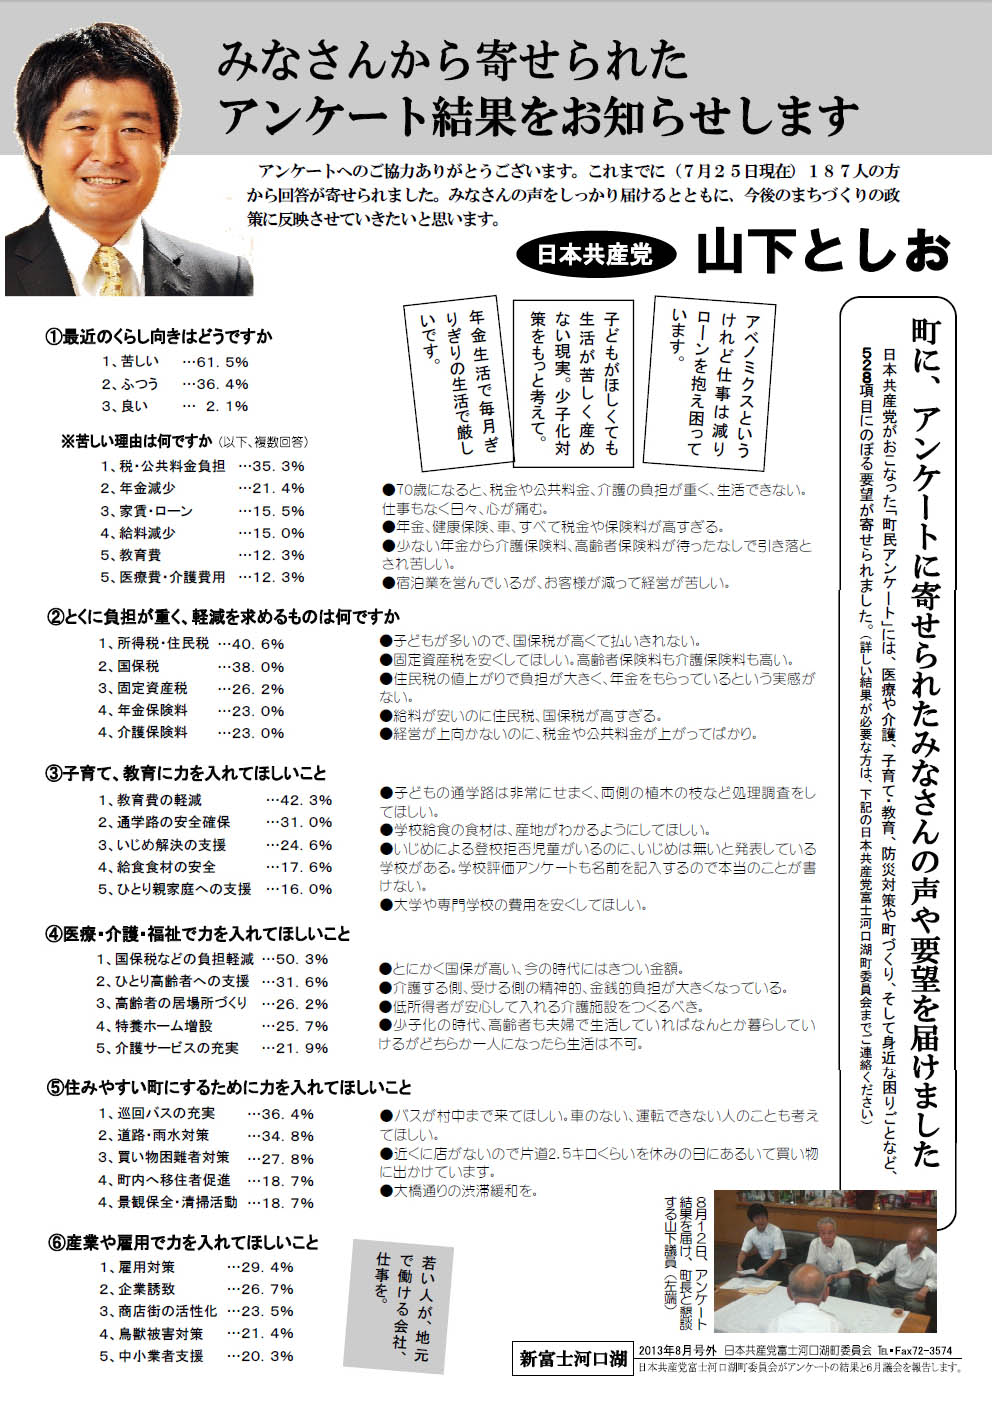 みなさんから寄せられた
アンケート結果をお知らせします
アンケートへのご協力ありがとうございます。これまでに（７月２５日現在）１８７人の方
から回答が寄せられました。みなさんの声をしっかり届けるとともに、今後のまちづくりの政
策に反映させていきたいと思います。
日本共産党 山下としお
町に、アンケートに寄せられたみなさんの声や要望を届けました
日本共産党がおこなった「町民アンケート」には、医療や介護、子育て・教育、防災対策や町づくり、そして身近な困りごとなど、
528項目にのぼる要望が寄せられました。（詳しい結果が必要な方は、下記の日本共産党富士河口湖町委員会までご連絡ください）
アベノミクスという
けれど仕事は減り
ローンを抱え困って
います。
子どもがほしくても
生活が苦しく産め
ない現実。少子化対
策をもっと考えて。
年金生活で毎月ぎ
りぎりの生活で厳し
いです。
①最近のくらし向きはどうですか
1、苦しい …61.5%
2、ふつう …36.4%
3、良い … 2.1%
※苦しい理由は何ですか（以下、複数回答）
1、税・公共料金負担 …35.3%
2、年金減少 …21.4%
3、家賃・ローン …15.5%
4、給料減少 …15.0%
5、教育費 …12.3%
5、医療費・介護費用 …12.3%
●70歳になると、税金や公共料金、介護の負担が重く、生活できない。
仕事もなく日々、心が痛む。
●年金、健康保険、車、すべて税金や保険料が高すぎる。
●少ない年金から介護保険料、高齢者保険料が待ったなしで引き落と
され苦しい。
●宿泊業を営んでいるが、お客様が減って経営が苦しい。
②とくに負担が重く、軽減を求めるものは何ですか
1、所得税・住民税 …40.6%
2、国保税 …38.0%
3、固定資産税 …26.2%
4、年金保険料 …23.0%
4、介護保険料 …23.0%
●子どもが多いので、国保税が高くて払いきれない。
●固定資産税を安くしてほしい。高齢者保険料も介護保険料も高い。
●住民税の値上がりで負担が大きく、年金をもらっているという実感が
ない。
●給料が安いのに住民税、国保税が高すぎる。
●経営が上向かないのに、税金や公共料金が上がってばかり。
③子育て、教育に力を入れてほしいこと
1、教育費の軽減 …42.3%
2、通学路の安全確保 …31.0%
3、いじめ解決の支援 …24.6%
4、給食食材の安全 …17.6%
5、ひとり親家庭への支援 …16.0%
●子どもの通学路は非常にせまく、両側の植木の枝など処理調査をし
てほしい。
●学校給食の食材は、産地がわかるようにしてほしい。
●いじめによる登校拒否児童がいるのに、いじめは無いと発表している
学校がある。学校評価アンケートも名前を記入するので本当のことが書
けない。
●大学や専門学校の費用を安くしてほしい。
④医療・介護・福祉で力を入れてほしいこと
1、国保税などの負担軽減 …50.3%
2、ひとり高齢者への支援 …31.6%
3、高齢者の居場所づくり …26.2%
4、特養ホーム増設 …25.7%
5、介護サービスの充実 …21.9%
●とにかく国保が高い、今の時代にはきつい金額。
●介護する側、受ける側の精神的、金銭的負担が大きくなっている。
●低所得者が安心して入れる介護施設をつくるべき。
●少子化の時代、高齢者も夫婦で生活していればなんとか暮らしてい
けるがどちらか一人になったら生活は不可。
⑤住みやすい町にするために力を入れてほしいこと
1、巡回バスの充実 …36.4%
2、道路・雨水対策 …34.8%
3、買い物困難者対策 …27.8%
4、町内へ移住者促進 …18.7%
4、景観保全・清掃活動 …18.7%
●バスが村中まで来てほしい。車のない、運転できない人のことも考え
てほしい。
●近くに店がないので片道2.5キロくらいを休みの日にあるいて買い物
に出かけています。
●大橋通りの渋滞緩和を。
⑥産業や雇用で力を入れてほしいこと
1、雇用対策 …29.4%
2、企業誘致 …26.7%
3、商店街の活性化 …23.5%
4、鳥獣被害対策 …21.4%
5、中小業者支援 …20.3%
若い人が、地元
で働ける会社、
仕事を。
８月１２日、アンケート
結果を届け、町長と懇談
する山下議員（左端）
新富士河口湖
2013年8月号外 日本共産党富士河口湖町委員会 ℡・Fax72-3574
日本共産党富士河口湖町委員会がアンケートの結果と6月議会を報告します。